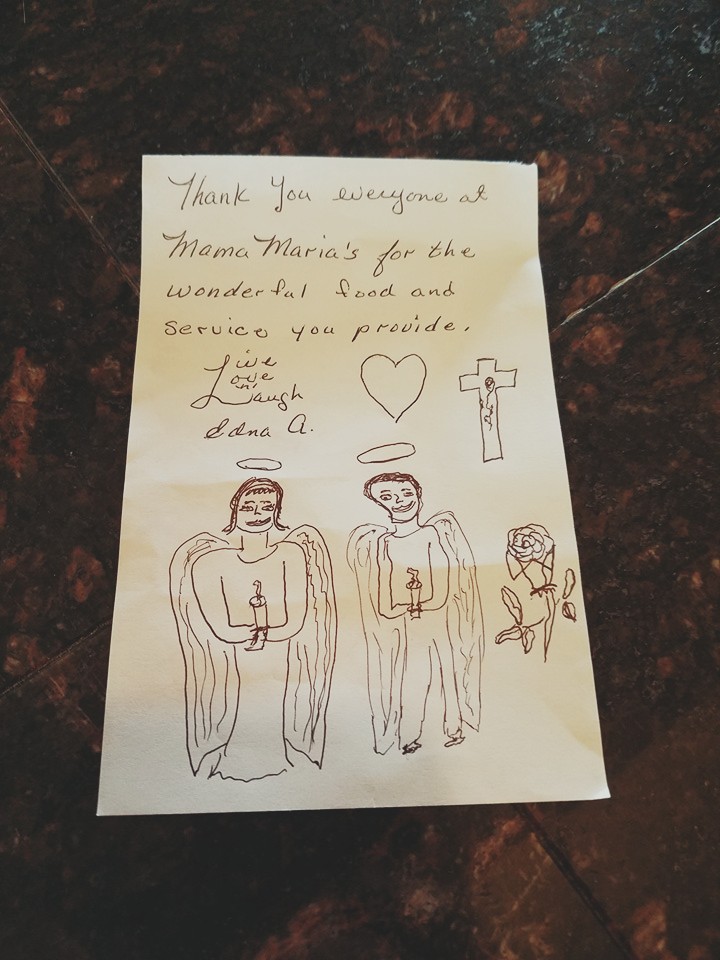 Thank You everyone at
Mama Maria's for the
wonderful food and
service you provide.
Live
Love
'n'
Laugh
Edna A.